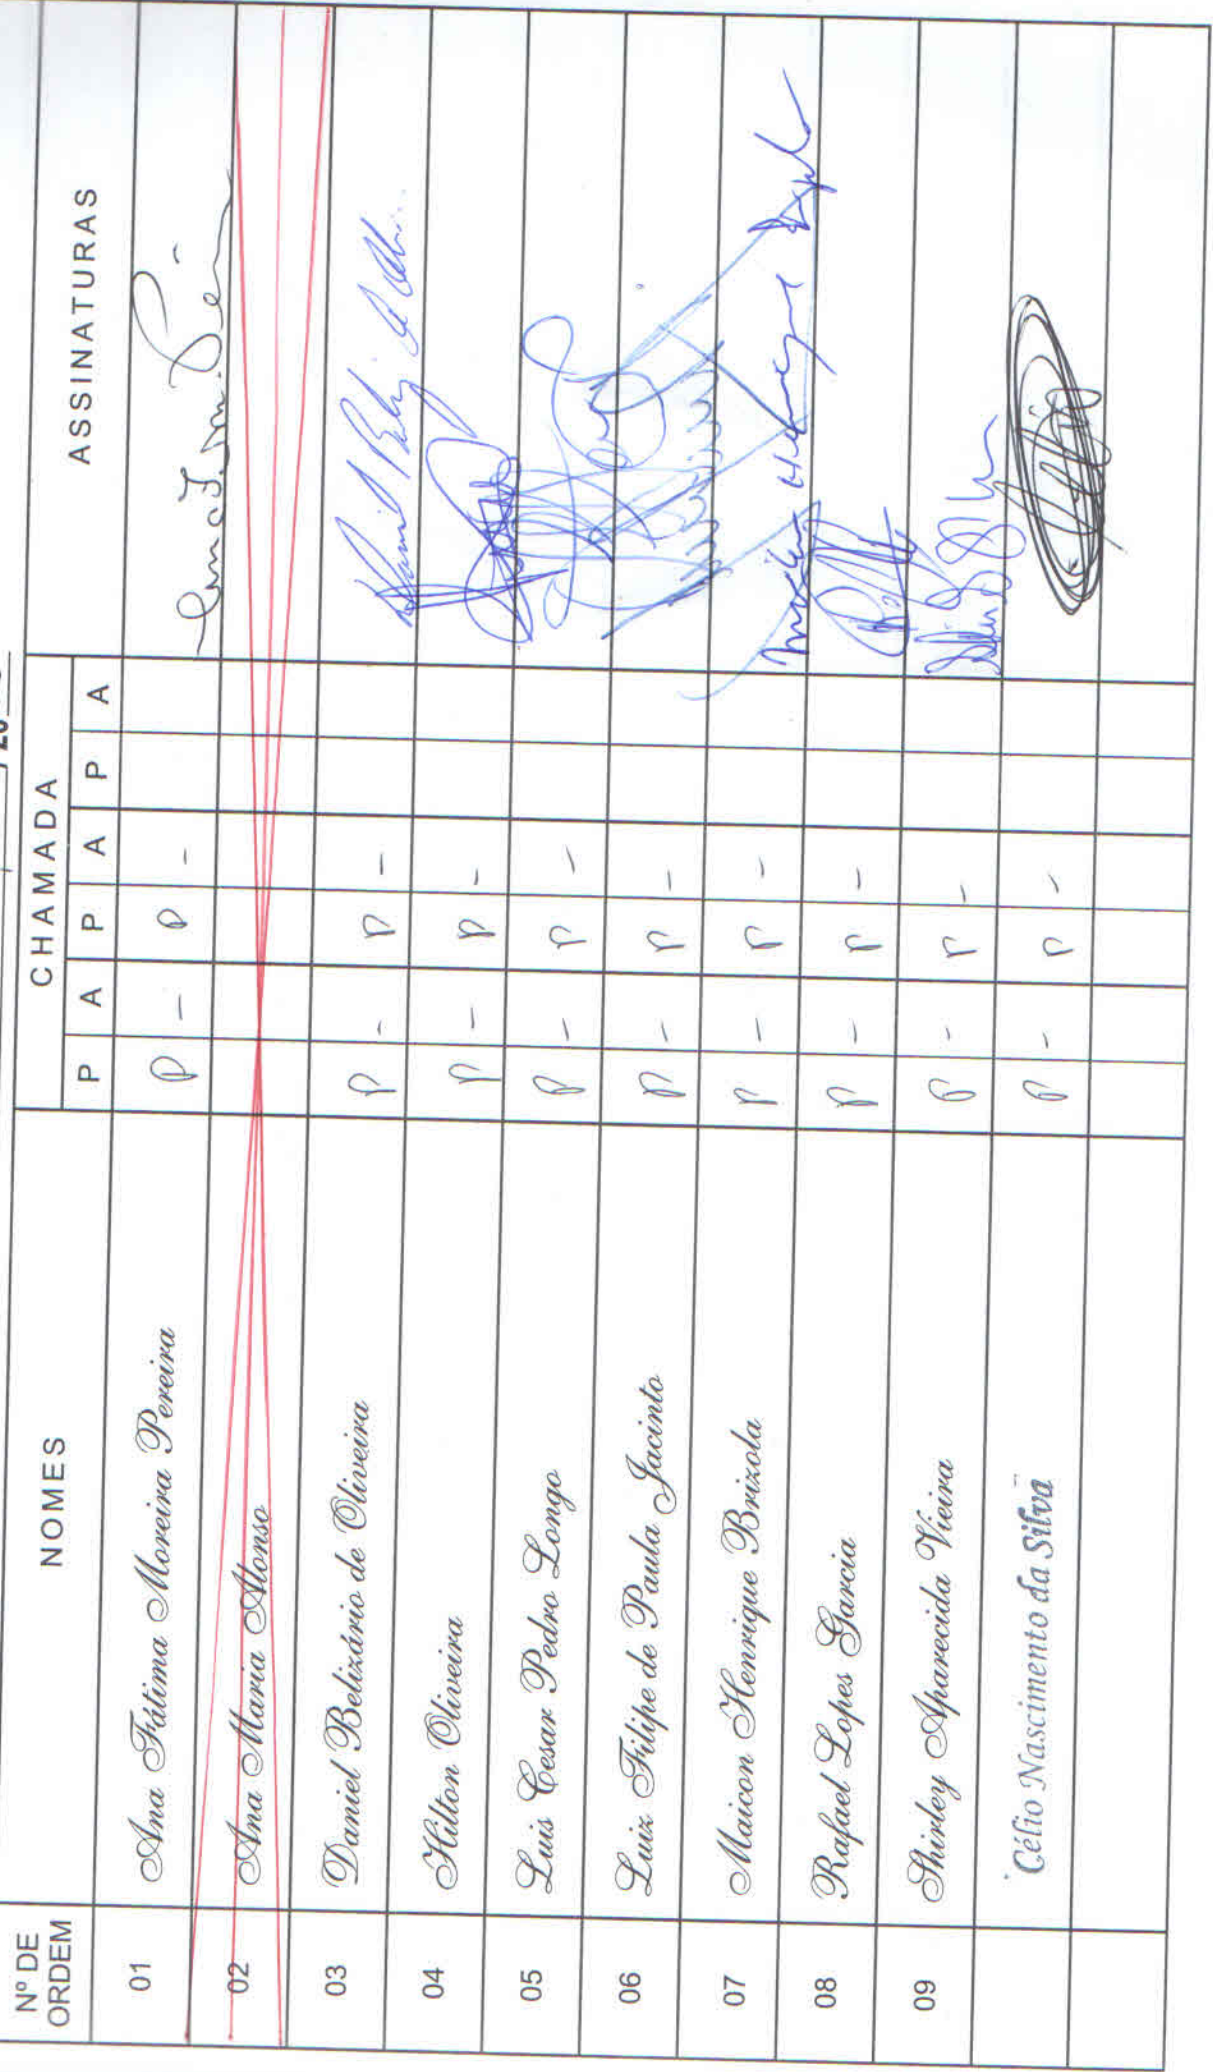 / 20
Nº DE ORDEM NOMES CHAMADA ASSINATURAS
P A P A P A
01 Ana Fátima Moreira Pereira P - P -
02 Ana Maria Alonso
03 Daniel Belizário de Oliveira P - P -
04 Hilton Oliveira P - P -
05 Luis Cesar Pedro Longo P - P -
06 Luiz Filipe de Paula Jacinto P - P -
07 Maicon Henrique Brizola P - P - Maicon Henrique Brizola
08 Rafael Lopes Garcia P - P -
09 Shirley Aparecida Vieira P - P -
Célio Nascimento da Silva P - P -